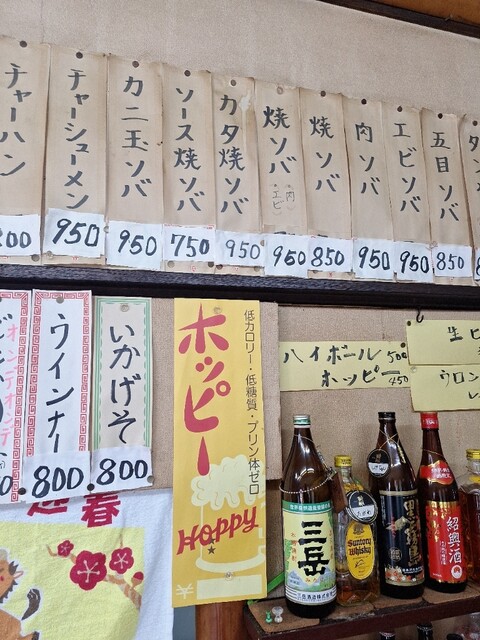 五目ソバ
850
エビソバ
950
肉ソバ
950
焼ソバ
850
焼ソバ
肉・エビ
950
カタ焼ソバ
950
ソース焼ソバ
750
カニ玉ソバ
950
チャーシューメン
950
チャーハン
生ビ
ウロン
ハイボール 500
ホッピー 450
低カロリー・低糖質・プリン体ゼロ
ホッピー
HOPPY
いかげそ
800
ウインナー
800
迎春
三岳
Suntory
Whisky
黒霧島
紹興酒